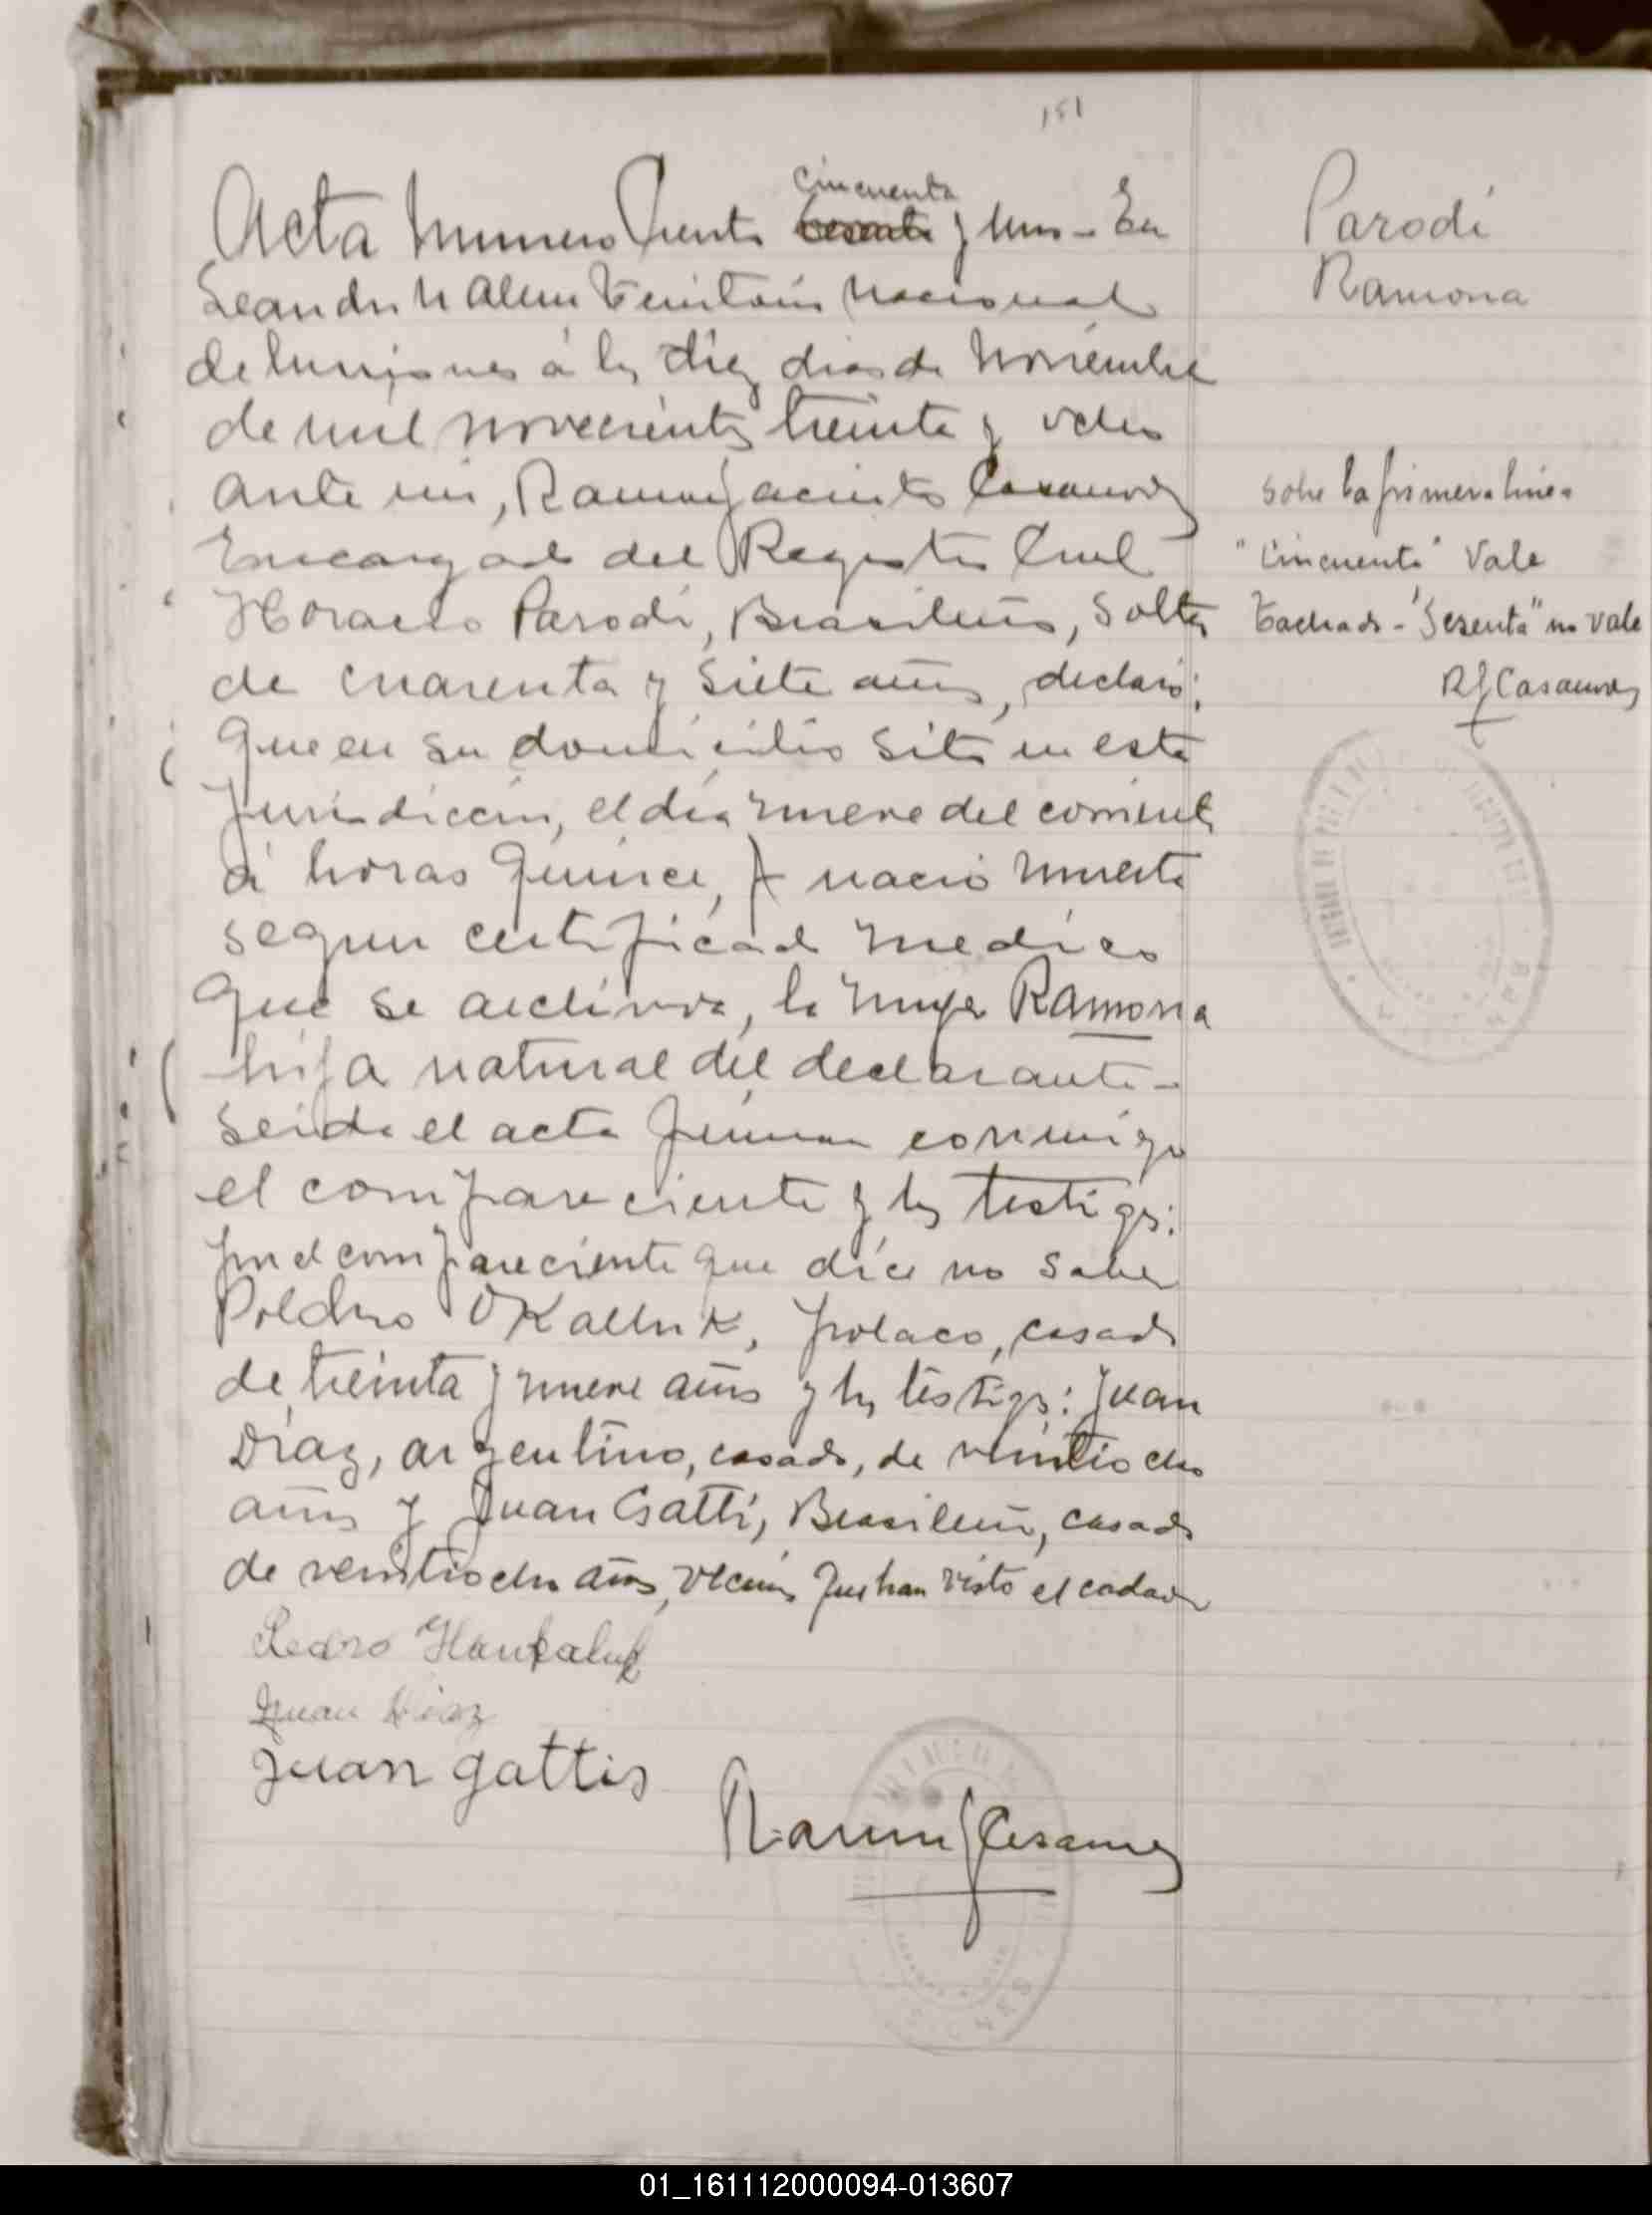 151
Acta Numero Ciento cincuenta
sesenta y Uno - En
Leandro N Alem Territorio Nacional
de Misiones á los diez dias de Noviembre
de mil novecientos treinta y ocho
ante mi, Ramon Jacinto Casanova
Encargado del Registro Civil
Horacio Parodi, Brasileño, Soltero
de cuarenta y siete años, declaró:
Que en su domicilio sito en esta
Jurisdiccion, el dia nueve del corriente
á horas Quince, nacio muerta
segun certificado medico
Que se archiva, la mujer Ramona
hija natural del declarante -
Leida el acta firman conmigo
el compareciente y los testigos:
por el compareciente que dice no saber
de treinta y nueve años y los testigos: Juan
Diaz, argentino, casado, de veintiocho
años y Juan Gatti, Brasileño, casado
de veintiocho años, vecinos que han visto el cadaver
Pedro
Juan Diaz
Juan gattis
Ramon J Casanova
Parodi
Ramona
Sobre la primera linea
"Cincuenta" Vale
Tachado - "Sesenta" no vale
R J Casanova
01_161112000094-013607